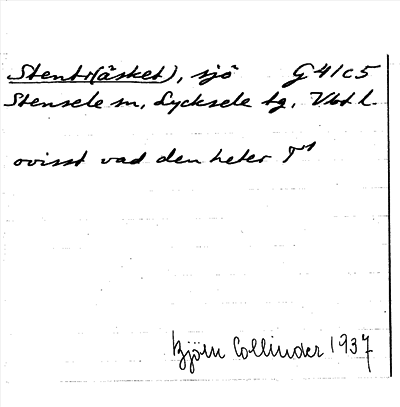 Stentr(äsket), sjö G 41c5
Stensele sn, Lycksele tg. Vbt l.
ovisst vad den heter
Björn Collinder 1937